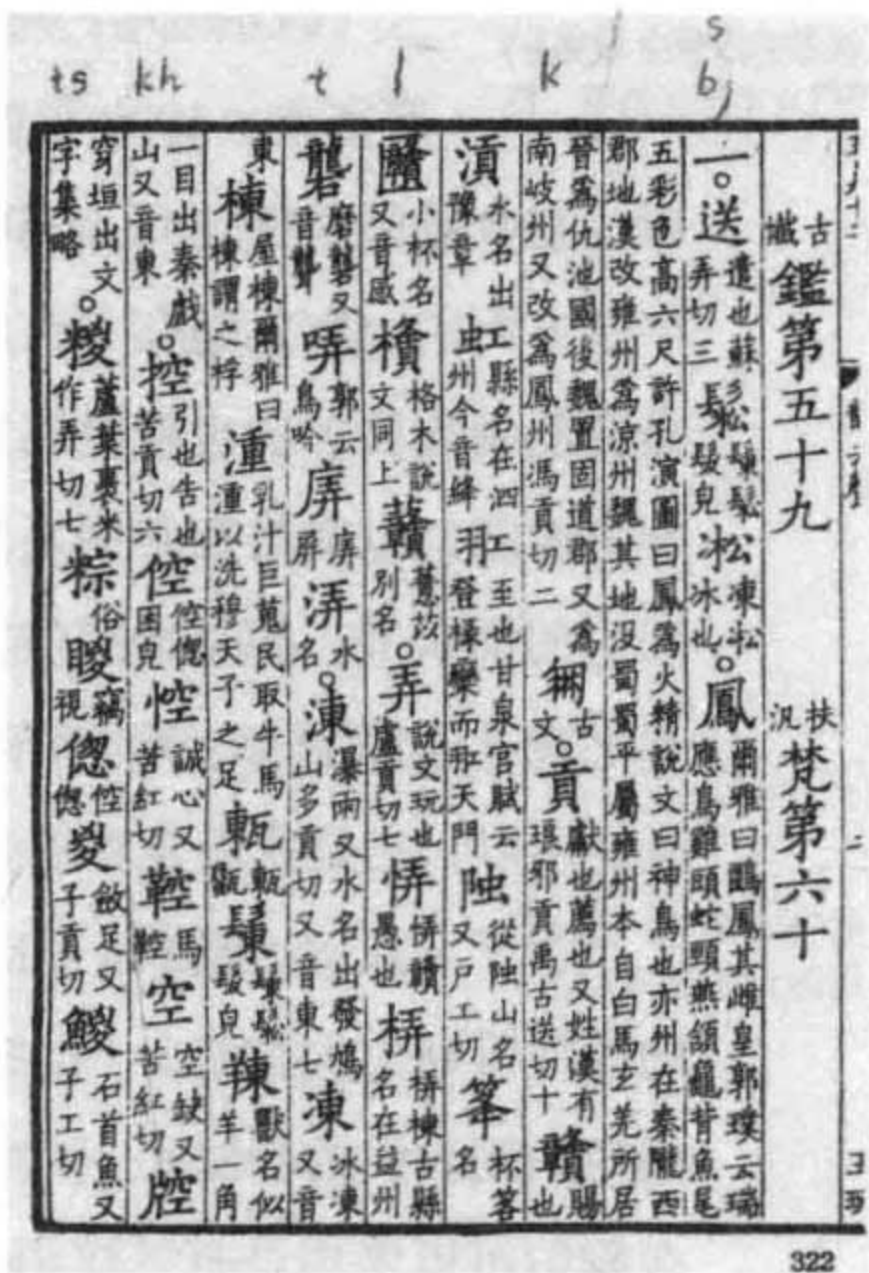 s
b
k
l
t
kh
ts
古
讖
鑑第五十九
扶
汎
梵第六十
一。送
遣也蘇
弄切三
鬆
鬆
髮皃
凇
凍凇
冰也
。鳳
爾雅曰鶠鳳其雌皇郭璞云瑞
應鳥雞頭蛇頸燕頷龜背魚尾
五彩色高六尺許孔演圖曰鳳爲火精說文曰神鳥也亦州在秦隴西
郡地漢改雍州爲涼州魏其地沒蜀蜀平屬雍州本自白馬玄羌所居
晉爲仇池國後魏置固道郡又爲
南岐州又改爲鳳州馮貢切二
古
文
。貢
獻也薦也又姓漢有
琅邪貢禹古送切十
贛
賜
也
水名出
豫章
虹
縣名在泗
州今音絳
羽
至也甘泉宮賦云
登椽欒而羾天門
從山名
又戶工切
杯客
名
小杯名
又音感
格木說
文同上
薏苡
別名
。弄
說文玩也
盧貢切七
愚也
梇
梇棟古縣
名在益州
礱
磨礱又
音聾
哢
郭云
鳥吟
屏
水
名
。涷
瀑雨又水名出發鳩
山多貢切又音東七
凍
冰凍
又音
東
棟
屋棟爾雅曰
棟謂之桴
湩
乳汁巨蒐民取牛馬
湩以洗穆天子之足
髮皃
獸名似
羊一角
一目出秦戲
山又音東
。控
引也告也
苦貢切六
倥
倥偬
困皃
悾
誠心又
苦紅切
鞚
馬
鞚
空
空缺又
苦紅切
穿垣出文
字集略
。糉
蘆葉裹米
作弄切七
粽
俗
竊
視
傯
倥
傯
斂足又
子貢切
鯼
石首魚又
子工切
322